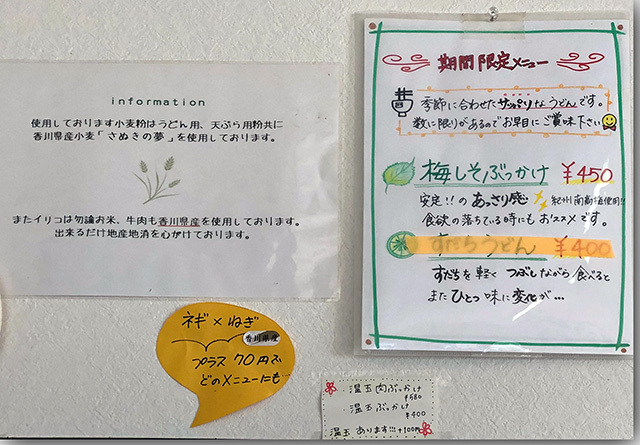 information
使用しております小麦粉はうどん用、天ぷら用粉共に
香川県産小麦「さぬきの夢」を使用しております。
またイリコは勿論お米、牛肉も香川県産を使用しております。
出来るだけ地産地消を心がけております。
期間限定メニュー
季節に合わせたサッパリなうどんです。
数に限りがあるのでお早目にご賞味下さい
梅しそぶっかけ ¥450
安定!!のあっさり感 紀州南高梅使用!!
食欲の落ちている時にもおススメです。
すだちうどん ¥400
すだちを軽くつぶしながら食べると
またひとつ味に変化が…
ネギ×ねぎ
香川県産
プラス70円で
どのメニューにも
温玉肉ぶっかけ
¥580
温玉ぶっかけ
¥400
温玉あります!!! +100円